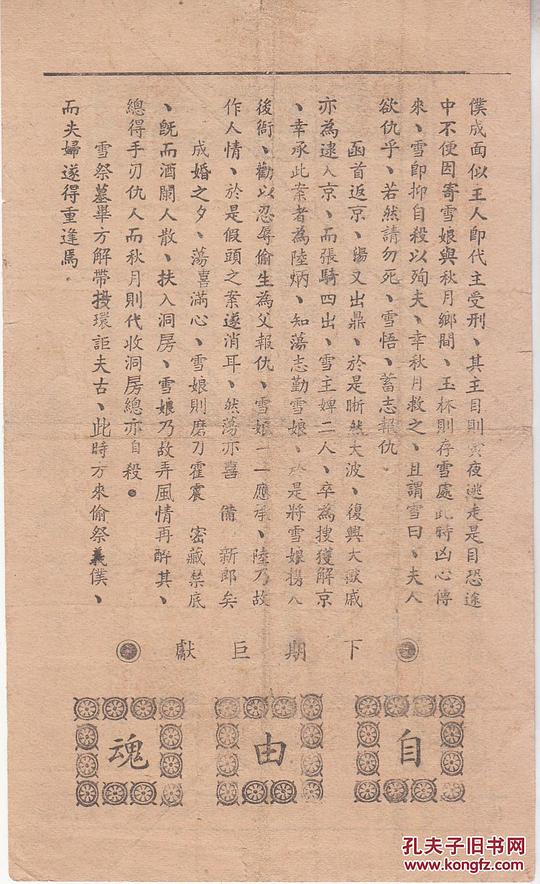 僕成面似主人即代主受刑、其主目則寅夜逃走是目恐途
中不便因寄雪娘與秋月鄉間、玉杯則存雪處此時凶心傳
來、雪即抑自殺以殉夫、幸秋月救之、且謂雪曰、夫人
欲仇乎、若然請勿死、雪悟、蓄志報仇、
函首返京、湯又出鼎、於是晣然大波、復興大獄戚
亦為逮入京、而張騎四出、雪主婢二人、卒為搜獲解京
、幸承此案者為陸炳、知蕩志勤雪娘、於是將雪娘携入
後衙、勸以忍辱偷生為父報仇、雪娘一一應承、陸乃故
作人情、於是假頭之案遂消耳、然蕩亦喜 備 新郎矣
成婚之夕、蕩喜滿心、雪娘則磨刀霍震 密藏禁底
、旣而酒闌人散、扶入洞房、雪娘乃故弄風情再酔其、
總得手刃仇人而秋月則代收洞房總亦自殺。
雪祭墓畢方解帶投環詎夫古、此時方來偷祭義僕、
而夫婦遂得重逢焉、
下期巨獻
自由魂
孔夫子旧书网
www.kongfz.com